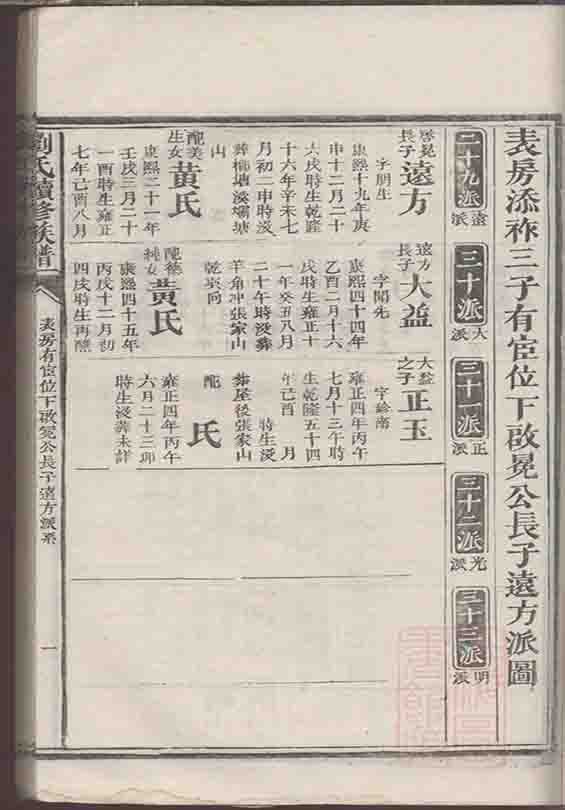 表房添祚三子有宦位下啟冕公長子遠方派圖
二十九派
遠派
三十派
大派
三十一派
正派
三十二派
光派
三十三派
明派
啓冕長子遠方
字朋生
康熙十九年庚
申十二月二十
六戌時生乾隆
十六年辛未七
月初二申時沒
葬櫛塘溪壩塘
山
配美生女黃氏
康熙二十一年
壬戌三月二十
一酉時生雍正
七年己酉八月
遠方長子大益
字開先
康熙四十四年
乙酉二月十六
戌時生雍正十
一年癸丑八月
二十午時沒葬
羊角冲張家山
乾亥向
配德純女黃氏
康熙四十五年
丙戌十二月初
四戌時生再醮
大益之子正玉
雍正四年丙午
七月十三午時
生乾隆五十四
年己酉 月
時生沒
葬屋後張家山
配 氏
雍正四年丙午
六月二十三卯
時生沒葬未詳
劉氏續修族譜
表房有宦位下啟冕公長子遠方派系
一